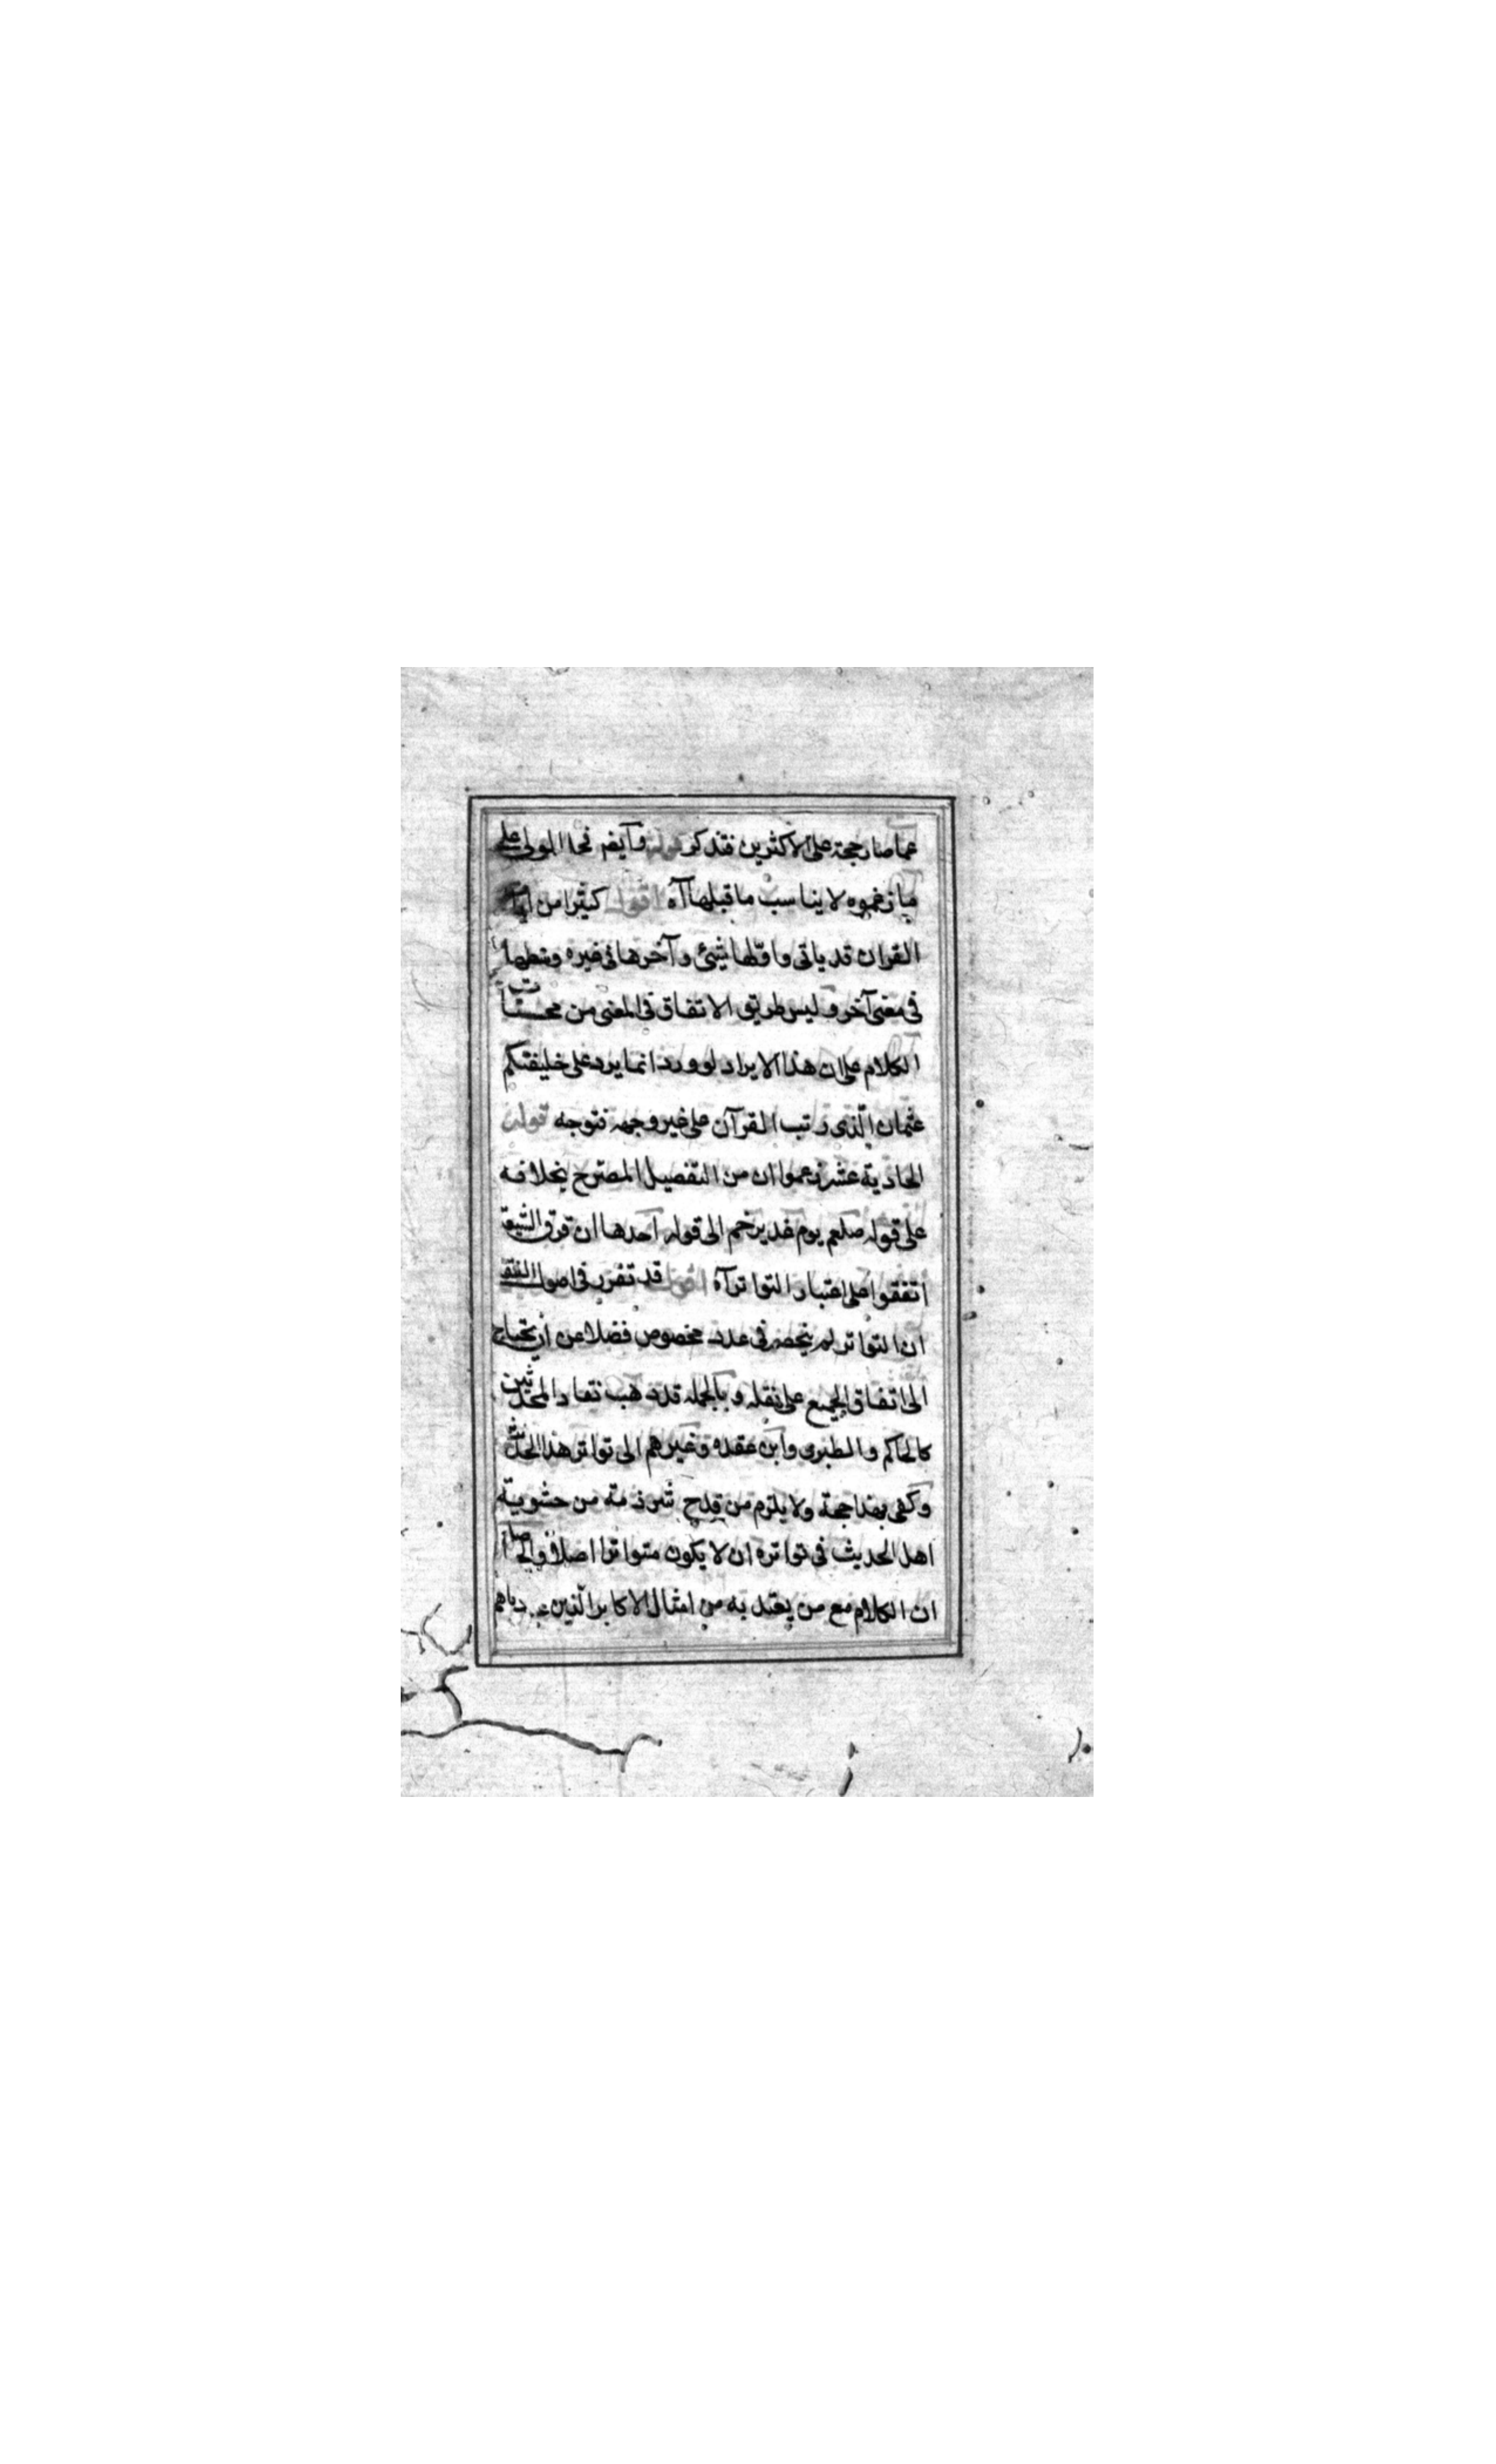 عما صار حجة على الاكثرين فتذكر قوله وآيضم فحمل المولى على
ما زعموه لا يناسب ما قبلها آه اقول كيثرا من آيات
القران قد ياتى واوّلها شيئ و آخرها فى غيره ووسطها
فى معنى آخر و ليس طريق الاتفاق فى المعنى من محسنات
الكلام على ان هذا الايراد لو ورد انما يرد على خليفتكم
عثمان الّذى رتب القرآن على غير وجهه فتوجه قوله
الحادية عشر زعموا ان من التفصيل المصترح بخلافه
على قوله صلعم يوم غدير خم الى قوله احدها ان فرق الشيعة
اتفقوا على اعتبار التواتر آه اقول قد تقرر فى اصول الفقه
ان التواتر لم ينحصر فى عدد مخصوص فضلا عن ان يحتاج
الى اتفاق الجميع على نقله و بالجمله قد ذهب نقاد المحدثين
كالحاكم و الطبرى وابن عقده وغيرهم الى تواتر هذا الحديث
وكفى بهذا حجة ولا يلزم من قدح شرذمة من حشوية
اهل الحديث فى تواتره ان لا يكون متواترا اصلا والحاصل
ان الكلام مع من يعتد به من امثال الاكابر الّذين